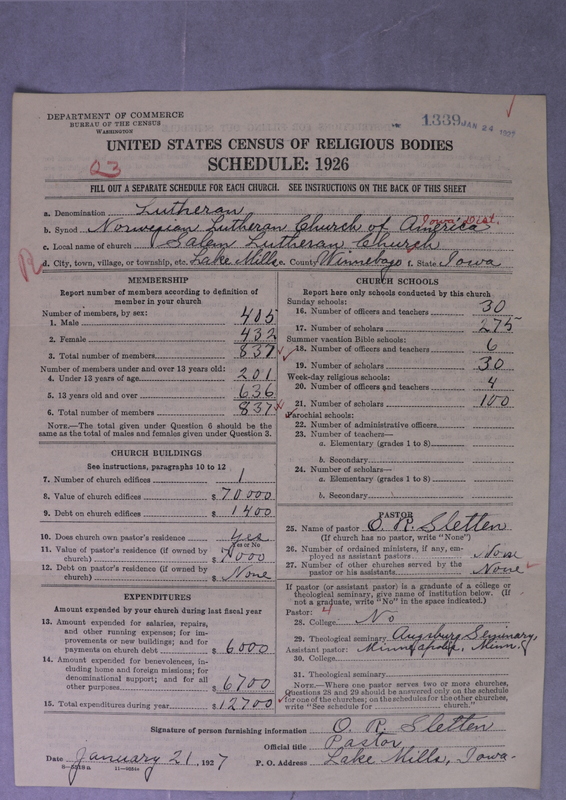 DEPARTMENT OF COMMERCE
BUREAU OF THE CENSUS
WASHINGTON
1339 JAN 24 1927
UNITED STATES CENSUS OF RELIGIOUS BODIES
SCHEDULE: 1926
FILL OUT A SEPARATE SCHEDULE FOR EACH CHURCH. SEE INSTRUCTIONS ON THE BACK OF THIS SHEET
a. Denomination Lutheran
b. Synod Norwegian Lutheran Church of America Iowa Dist.
c. Local name of church Salem Lutheran Church
d. City, town, village, or township, etc. Lake Mills e. County Winnebago f. State Iowa
MEMBERSHIP
Report number of members according to definition of
member in your church
Number of members, by sex:
1. Male 405
2. Female 432
3. Total number of members 837
Number of members under and over 13 years old:
4. Under 13 years of age 201
5. 13 years old and over 636
6. Total number of members 837
NOTE.—The total given under Question 6 should be the
same as the total of males and females given under Question 3.
CHURCH BUILDINGS
See instructions, paragraphs 10 to 12
7. Number of church edifices 1
8. Value of church edifices $ 70000
9. Debt on church edifices $ 1400
10. Does church own pastor's residence Yes
Yes or No
11. Value of pastor's residence (if owned by
church) $ 7000
12. Debt on pastor's residence (if owned by
church) $ None
EXPENDITURES
Amount expended by your church during last fiscal year
13. Amount expended for salaries, repairs,
and other running expenses; for im-
provements or new buildings; and for
payments on church debt $ 6000
14. Amount expended for benevolences, in-
cluding home and foreign missions; for
denominational support; and for all
other purposes $ 6700
15. Total expenditures during year $ 12700
CHURCH SCHOOLS
Report here only schools conducted by this church
Sunday schools:
16. Number of officers and teachers 30
17. Number of scholars 275
Summer vacation Bible schools:
18. Number of officers and teachers 6
19. Number of scholars 30
Week-day religious schools:
20. Number of officers and teachers 4
21. Number of scholars 100
Parochial schools:
22. Number of administrative officers
23. Number of teachers—
a. Elementary (grades 1 to 8)
b. Secondary
24. Number of scholars—
a. Elementary (grades 1 to 8)
b. Secondary
PASTOR
25. Name of pastor O. R. Sletten
(If church has no pastor, write "None")
26. Number of ordained ministers, if any, em-
ployed as assistant pastors None
27. Number of other churches served by the
pastor or his assistants None
If pastor (or assistant pastor) is a graduate of a college or
theological seminary, give name of institution below. (If
not a graduate, write "No" in the space indicated.)
Pastor: 4
28. College No
29. Theological seminary Augsburg Seminary,
Assistant pastor: Minneapolis, Minn.
30. College
31. Theological seminary
NOTE.—Where one pastor serves two or more churches,
Questions 28 and 29 should be answered only on the schedule
for one of the churches; on the schedules for the other churches,
write "See schedule for church."
Signature of person furnishing information O. R. Sletten
Official title Pastor
Date January 21, 1927 P. O. Address Lake Mills, Iowa.